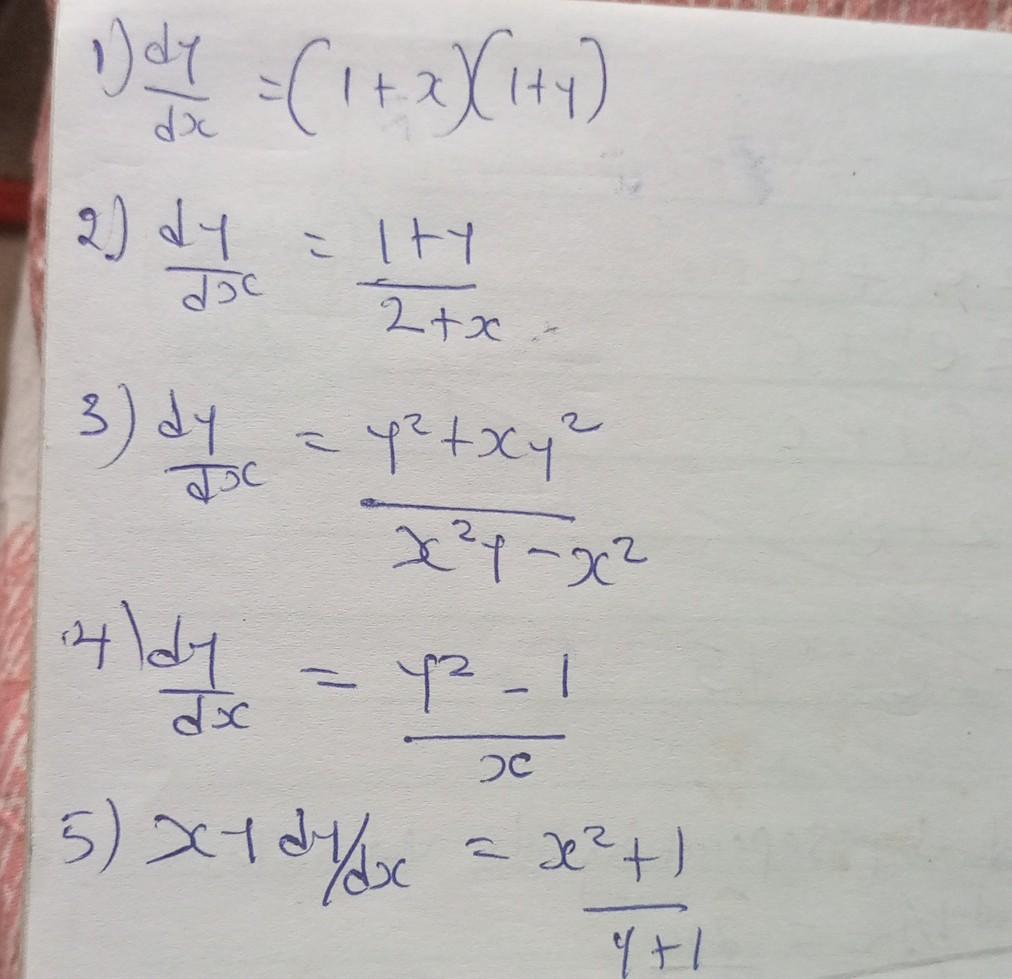 1) dy/dx = (1+x)(1+y)
2) dy/dx = 1+y/2+x
3) dy/dx = y²+xy²/x²y-x²
4) dy/dx = y²-1/x
5) xy dy/dx = x²+1/y+1